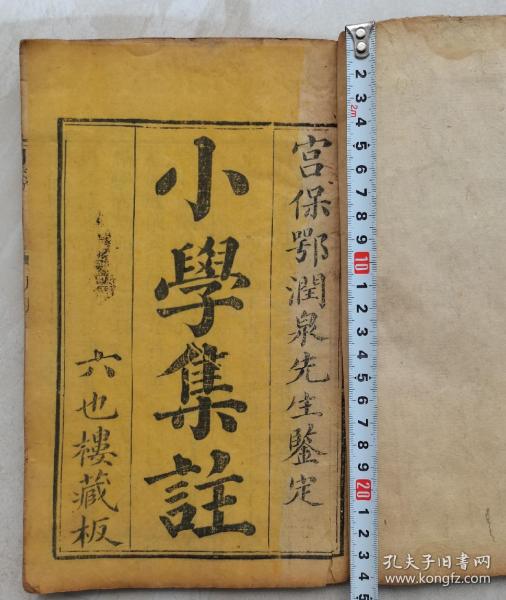 宫保鄂潤泉先生鑒定
小學集註
六也樓藏板
2 3 4 5 6 7 8 9 10 1 2 3 4 5 6 7 8 9 20 1 2 3 4
2m
孔夫子旧书网
www.kongfz.com